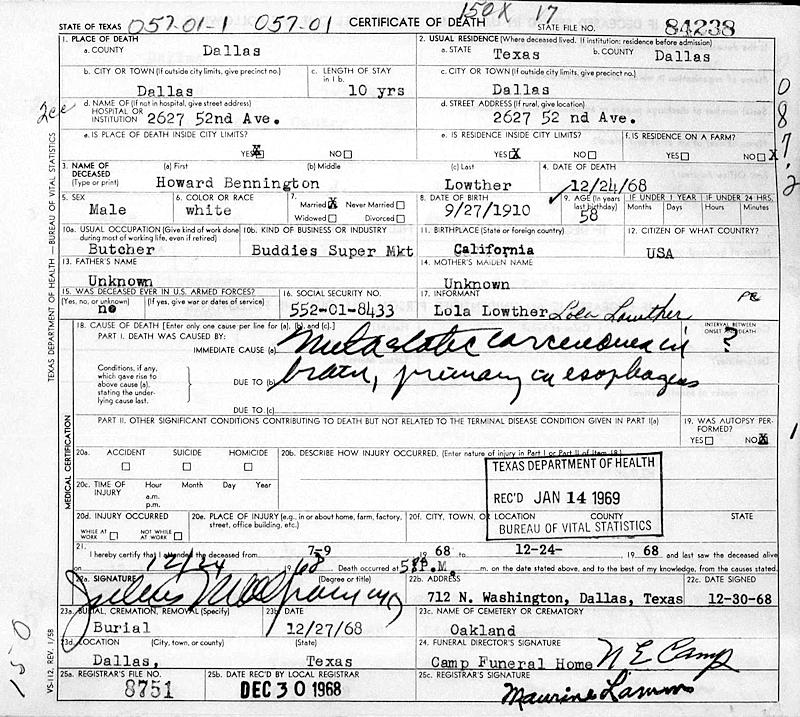 057-01-1 057-01 150X 17
STATE OF TEXAS CERTIFICATE OF DEATH STATE FILE NO. 84238
1. PLACE OF DEATH 2. USUAL RESIDENCE (Where deceased lived. If institution: residence before admission)
a. COUNTY Dallas a. STATE Texas b. COUNTY Dallas
b. CITY OR TOWN (If outside city limits, give precinct no.) c. LENGTH OF STAY in 1 b. c. CITY OR TOWN (If outside city limits, give precinct no.)
Dallas 10 yrs Dallas
d. NAME OF (If not in hospital, give street address) HOSPITAL OR INSTITUTION 2627 52nd Ave. d. STREET ADDRESS (If rural, give location) 2627 52 nd Ave.
e. IS PLACE OF DEATH INSIDE CITY LIMITS? e. IS RESIDENCE INSIDE CITY LIMITS? f. IS RESIDENCE ON A FARM?
YES X NO YES X NO YES NO X
3. NAME OF DECEASED (Type or print) (a) First (b) Middle (c) Last 4. DATE OF DEATH
Howard Bennington Lowther 12/24/68
5. SEX 6. COLOR OR RACE 7. Married X Never Married 8. DATE OF BIRTH 9. AGE (In years last birthday) IF UNDER 1 YEAR IF UNDER 24 HRS.
Male white Widowed Divorced 9/27/1910 58 Months Days Hours Minutes
10a. USUAL OCCUPATION (Give kind of work done during most of working life, even if retired) 10b. KIND OF BUSINESS OR INDUSTRY 11. BIRTHPLACE (State or foreign country) 12. CITIZEN OF WHAT COUNTRY?
Butcher Buddies Super Mkt California USA
13. FATHER'S NAME 14. MOTHER'S MAIDEN NAME
Unknown Unknown
15. WAS DECEASED EVER IN U.S. ARMED FORCES? 16. SOCIAL SECURITY NO. 17. INFORMANT
(Yes, no, or unknown) (If yes, give war or dates of service)
no 552-01-8433 Lola Lowther Lola Lowther
18. CAUSE OF DEATH [Enter only one cause per line for (a), (b), and (c).] INTERVAL BETWEEN ONSET
PART I. DEATH WAS CAUSED BY:
IMMEDIATE CAUSE (a) Metastatic carcinoma in ?
Conditions, if any, which gave rise to above cause (a), stating the underlying cause last.
DUE TO (b) brain, primary in esophagus
DUE TO (c)
PART II. OTHER SIGNIFICANT CONDITIONS CONTRIBUTING TO DEATH BUT NOT RELATED TO THE TERMINAL DISEASE CONDITION GIVEN IN PART I(a) 19. WAS AUTOPSY PERFORMED?
YES NO X
20a. ACCIDENT SUICIDE HOMICIDE 20b. DESCRIBE HOW INJURY OCCURRED. (Enter nature of injury in Part I or Part II of Item 18.)
20c. TIME OF INJURY Hour Month Day Year
a.m.
p.m.
TEXAS DEPARTMENT OF HEALTH
REC'D JAN 14 1969
BUREAU OF VITAL STATISTICS
20d. INJURY OCCURRED 20e. PLACE OF INJURY (e.g., in or about home, farm, factory, street, office building, etc.) 20f. CITY, TOWN, OR LOCATION COUNTY STATE
WHILE AT WORK NOT WHILE AT WORK
21. I hereby certify that I attended the deceased from 7-9 19 68 to 12-24- 19 68 and last saw the deceased alive
on 12/24 19 68 Death occurred at P.M. m. on the date stated above, and to the best of my knowledge, from the causes stated.
22a. SIGNATURE (Degree or title) 22b. ADDRESS 22c. DATE SIGNED
712 N. Washington, Dallas, Texas 12-30-68
23a. BURIAL, CREMATION, REMOVAL (Specify) 23b. DATE 23c. NAME OF CEMETERY OR CREMATORY
Burial 12/27/68 Oakland
23d. LOCATION (City, town, or county) (State) 24. FUNERAL DIRECTOR'S SIGNATURE
Dallas, Texas Camp Funeral Home N E Camp
25a. REGISTRAR'S FILE NO. 25b. DATE REC'D BY LOCAL REGISTRAR 25c. REGISTRAR'S SIGNATURE
8751 DEC 30 1968 Maurine
TEXAS DEPARTMENT OF HEALTH — BUREAU OF VITAL STATISTICS
MEDICAL CERTIFICATION
VS-112, REV. 1/58
150
087.2
1